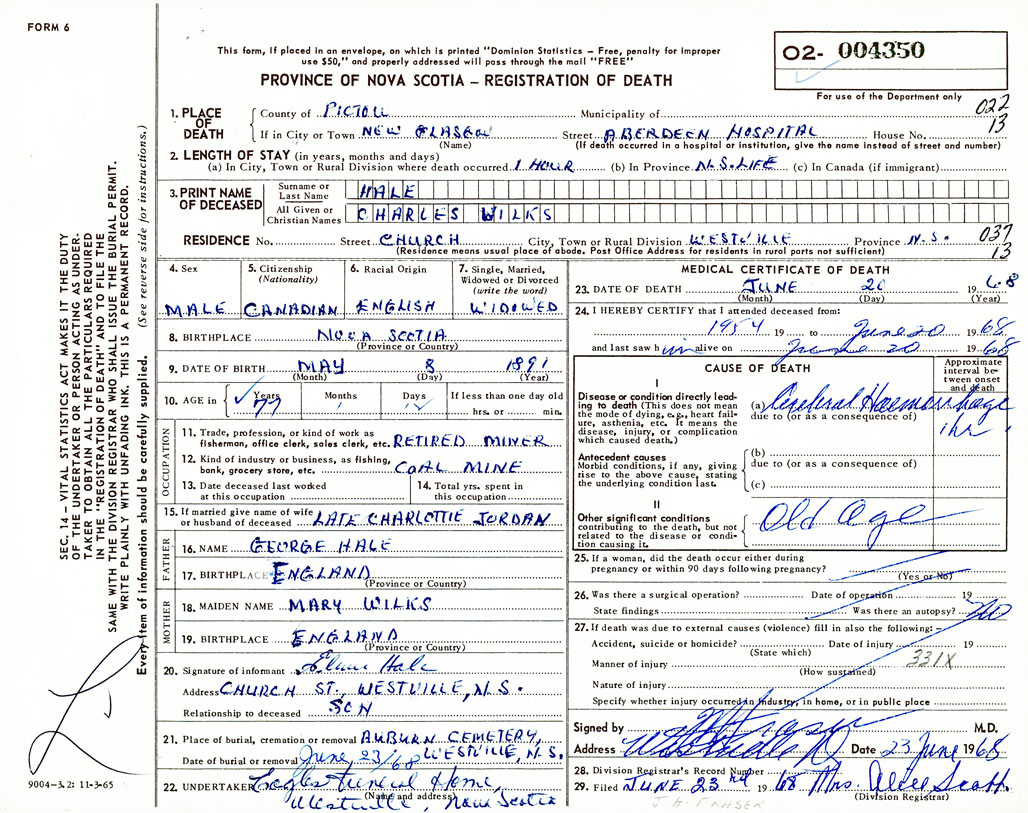 FORM 6
This form, if placed in an envelope, on which is printed "Dominion Statistics – Free, penalty for improper
use $50," and properly addressed will pass through the mail "FREE"
PROVINCE OF NOVA SCOTIA – REGISTRATION OF DEATH
02- 004350
For use of the Department only
022
13
1. PLACE OF DEATH
County of PICTOU Municipality of
If in City or Town NEW GLASGOW Street ABERDEEN HOSPITAL House No.
(Name) (If death occurred in a hospital or institution, give the name instead of street and number)
2. LENGTH OF STAY (in years, months and days)
(a) In City, Town or Rural Division where death occurred 1 HOUR (b) In Province N.S. LIFE (c) In Canada (if immigrant)
3. PRINT NAME OF DECEASED
Surname or Last Name HALE
All Given or Christian Names CHARLES WILKS
RESIDENCE No. Street CHURCH City, Town or Rural Division WESTVILLE Province N.S.
037
13
(Residence means usual place of abode. Post Office Address for residents in rural parts not sufficient)
4. Sex MALE
5. Citizenship (Nationality) CANADIAN
6. Racial Origin ENGLISH
7. Single, Married, Widowed or Divorced (write the word) WIDOWED
8. BIRTHPLACE NOVA SCOTIA
(Province or Country)
9. DATE OF BIRTH MAY 8 1891
(Month) (Day) (Year)
10. AGE in Years 77 Months 1 Days 12 If less than one day old
hrs. or min.
OCCUPATION
11. Trade, profession, or kind of work as
fisherman, office clerk, sales clerk, etc. RETIRED MINER
12. Kind of industry or business, as fishing,
bank, grocery store, etc. COAL MINE
13. Date deceased last worked
at this occupation
14. Total yrs. spent in
this occupation
15. If married give name of wife
or husband of deceased LATE CHARLOTTIE JORDAN
FATHER
16. NAME GEORGE HALE
17. BIRTHPLACE ENGLAND
(Province or Country)
MOTHER
18. MAIDEN NAME MARY WILKS
19. BIRTHPLACE ENGLAND
(Province or Country)
20. Signature of informant Hale
Address CHURCH ST., WESTVILLE, N.S.
Relationship to deceased SON
21. Place of burial, cremation or removal AUBURN CEMETERY,
Date of burial or removal June 23/68 WESTVILLE, N.S.
22. UNDERTAKER Funeral Home,
(Name and address) Westville, Nova Scotia
MEDICAL CERTIFICATE OF DEATH
23. DATE OF DEATH JUNE 20 1968
(Month) (Day) (Year)
24. I HEREBY CERTIFY that I attended deceased from:
1954 19 to June 20 1968
and last saw him alive on June 20 1968
CAUSE OF DEATH
Approximate interval between onset and death
I
Disease or condition directly leading to death (This does not mean the mode of dying, e.g., heart failure, asthenia, etc. It means the disease, injury, or complication which caused death.)
(a) Cerebral Haemorrhage
due to (or as a consequence of)
1 hr
Antecedent causes
Morbid conditions, if any, giving rise to the above cause, stating the underlying condition last.
(b)
due to (or as a consequence of)
(c)
II
Other significant conditions
contributing to the death, but not related to the disease or condition causing it.
Old Age
25. If a woman, did the death occur either during
pregnancy or within 90 days following pregnancy?
(Yes or No)
26. Was there a surgical operation? Date of operation 19
State findings Was there an autopsy? No
27. If death was due to external causes (violence) fill in also the following:–
Accident, suicide or homicide? Date of injury 19
(State which)
Manner of injury 331X
(How sustained)
Nature of injury
Specify whether injury occurred in industry, in home, or in public place
Signed by M.D.
Address Date 23 June 1968
28. Division Registrar's Record Number
29. Filed JUNE 23rd 1968 Mrs. Alice Scott
(Division Registrar)
J.H. FRASER
SEC. 14 – VITAL STATISTICS ACT MAKES IT THE DUTY
OF THE UNDERTAKER OR PERSON ACTING AS UNDER-
TAKER TO OBTAIN ALL THE PARTICULARS REQUIRED
IN THE "REGISTRATION OF DEATH" AND TO FILE THE
SAME WITH THE DIVISION REGISTRAR WHO SHALL ISSUE THE BURIAL PERMIT.
WRITE PLAINLY WITH UNFADING INK. THIS IS A PERMANENT RECORD.
Every item of information should be carefully supplied. (See reverse side for instructions.)
9004-3.2: 11-3-65